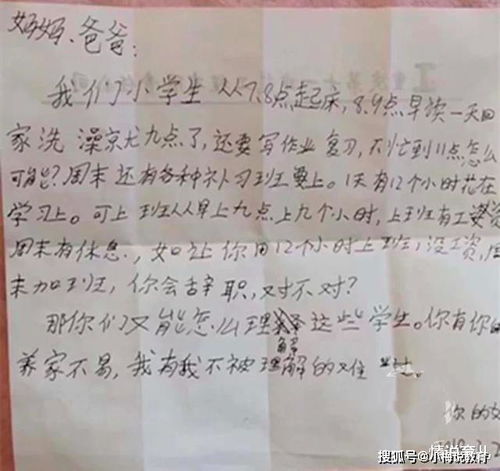 妈妈、爸爸:
我们小学生从7.8点起床,8.9点早读一天回
家洗澡就九点了,还要写作业复习,不忙到11点怎么
可能?周末还有各种补习班要上。1天有12个小时花在
学习上。可上班从早上九点上九个小时,上班有工资
周末有休息,如让你用12个小时上班,没工资,周
末加班,你会辞职,对不对?
那你们又能怎么理解这些学生。你有你的
养家不易,我有我不被理解的难过。
你的女
搜狐号@小梅说教子